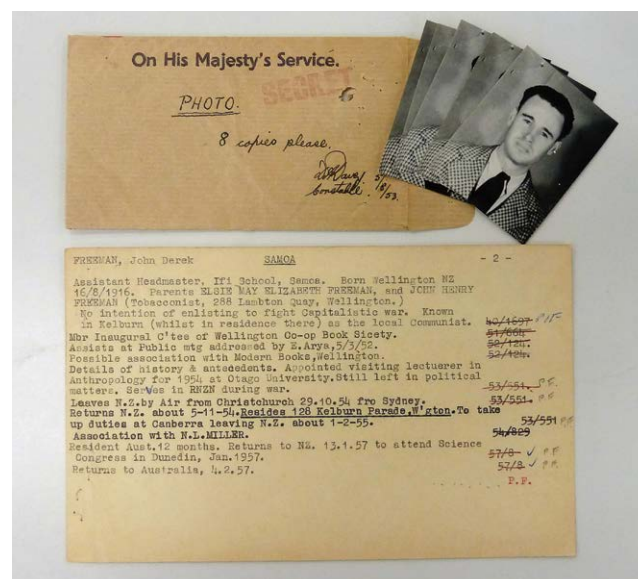 On His Majesty's Service.
SECRET
PHOTO.
8 copies please.
Constable.
8/53.
FREEMAN, John Derek SAMOA - 2 -
Assistant Headmaster, Ifi School, Samoa. Born Wellington NZ
16/8/1916. Parents ELSIE MAY ELIZABETH FREEMAN, and JOHN HENRY
FREEMAN (Tobacconist, 288 Lambton Quay, Wellington.)
No intention of enlisting to fight Capitalistic war. Known
in Kelburn (whilst in residence there) as the local Communist. 40/1597 P.F.
Mbr Inaugural C'tee of Wellington Co-op Book Sicety. 51/664
Assists at Public mtg addressed by Z.Arya,5/3/52. 52/124.
Possible association with Modern Books,Wellington. 52/124.
Details of history & antecedents. Appointed visiting lectuerer in
Anthropology for 1954 at Otago University.Still left in political
matters. Serves in RNZN during war. 53/551. P.F.
Leaves N.Z.by Air from Christchurch 29.10.54 fro Sydney. 53/551. P.F.
Returns N.Z. about 5-11-54.Resides 128 Kelburn Parade,W'gton.To take
up duties at Canberra leaving N.Z. about 1-2-55. 53/551 P.F.
Association with N.L.MILLER. 54/829
Resident Aust.12 months. Returns to NZ. 13.1.57 to attend Science
Congress in Dunedin, Jan.1957. 57/8 ✓ P.F.
Returns to Australia, 4.2.57. 57/8 ✓ P.F.
P.F.